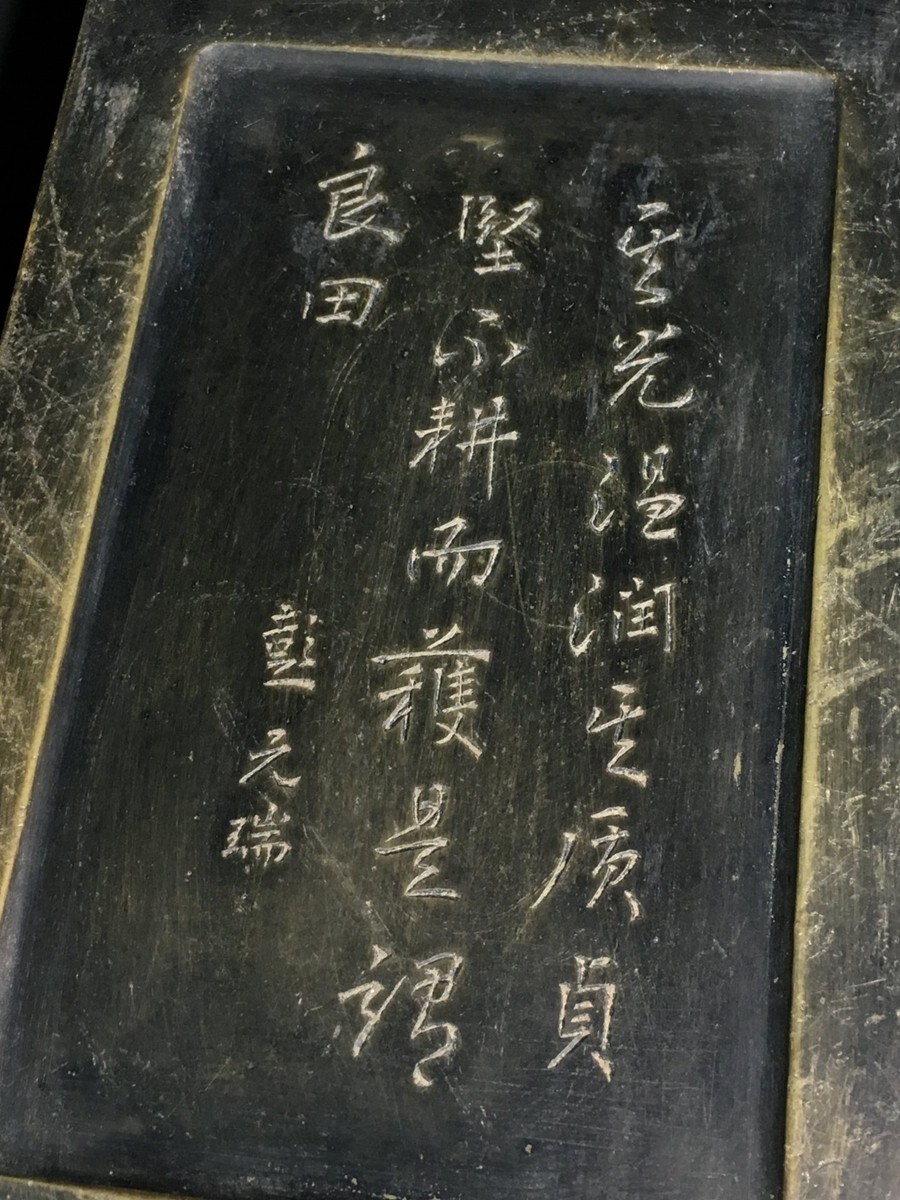 其光温润其质貞
堅不耕而穫是謂
良田
彭元瑞